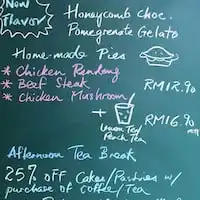 New
Flavor
Honeycomb Choc.
Pomegrenate Gelato
Home-made Pies
* Chicken Rendang
* Beef Steak RM12.90
* Chicken Mushroom
+ RM16.90
Lemon Tea/
Peach Tea
Afternoon Tea Break
25% off Cakes/Pastries w/
purchase of coffee/Tea